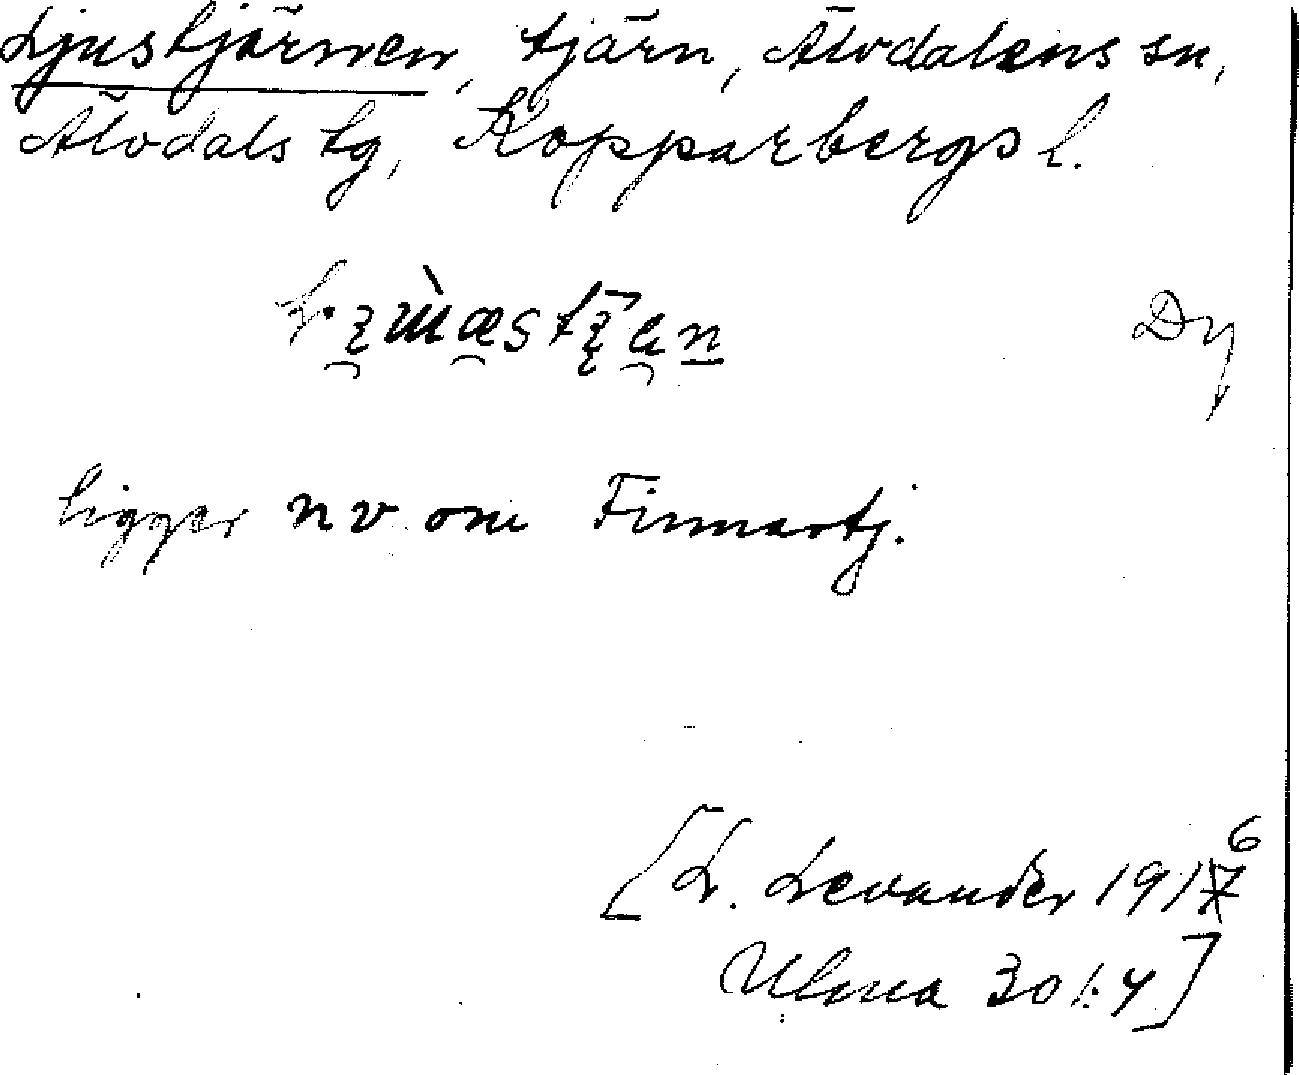 Ljustjärnen, tjärn, Älvdalens sn,
Älvdals tg, Kopparbergs l.
Dy
ligger nv om Finnastj.
[L. Levander 1916
Ulma 301:4]